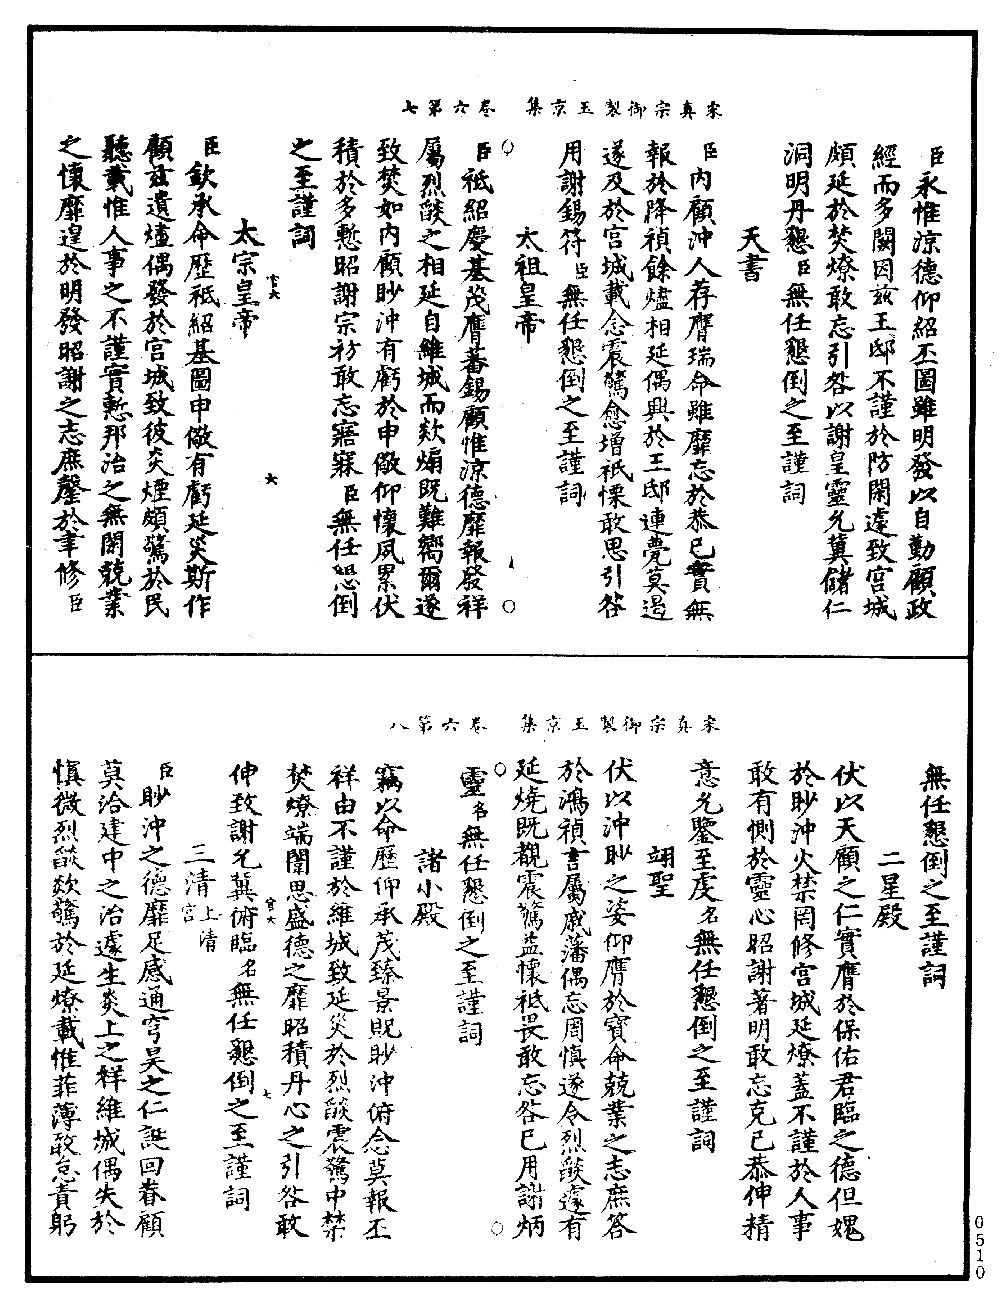 宋真宗御製玉京集　卷六第七
臣永惟涼德仰紹丕圖雖明發以自勤顧政
經而多闕因兹王邸不謹於防閑遽致宮城
頗延於焚燎敢忘引咎以謝皇靈允冀儲仁
洞明丹懇臣無任懇倒之至謹詞
天書
臣内顧沖人荐膺瑞命雖靡忘於恭已實無
報於降禎餘爐相延偶興於王邸連甍莫遏
遂及於宮城載念震驚愈增祇慄敢思引咎
用謝錫符臣無任懇倒之至謹詞
太祖皇帝
臣祗紹慶基茂膺蕃錫顧惟涼德靡報發祥
屬烈燄之相延自維城而欻煽既難嚮爾遂
致焚如内顧眇沖有虧於申儆仰懷夙累伏
積於多慙昭謝宗祊敢忘寤寐臣無任懇倒
之至謹詞
太宗皇帝
官六
六
臣欽承命歷祗紹基圖申儆有虧延災斯作
顧兹遺爐偶發於宮城致彼炎煙頗驚於民
聽載惟人事之不謹實慙邦治之無閑兢業
之懷靡遑於明發昭謝之志庶罄於聿修臣
宋真宗御製玉京集　卷六第八
無任懇倒之至謹詞
二星殿
伏以天顧之仁實膺於保佑君臨之德但媿
於眇沖火禁罔修宮城延燎蓋不謹於人事
敢有惻於靈心昭謝著明敢忘克已恭伸精
意允鑒至虔名無任懇倒之至謹詞
翊聖
伏以沖眇之姿仰膺於寶命兢業之志庶答
於鴻禎昔屬戚藩偶忘周慎遂令烈燄遽有
延燒既覩震驚益懷祗畏敢忘咎已用謝炳
靈名無任懇倒之至謹詞
諸小殿
竊以命歷仰承茂臻景貺眇沖俯念莫報丕
祥由不謹於維城致延災於烈燄震驚中禁
焚燎端闈思盛德之靡昭積丹心之引咎敢
伸致謝允冀俯臨名無任懇倒之至謹詞
官六
七
三清上清宮
臣眇沖之德靡足感通穹昊之仁誕回眷顧
莫洽建中之治遽生炎上之祥維城偶失於
慎微烈燄欻驚於延燎載惟菲薄敢怠責躬
0510